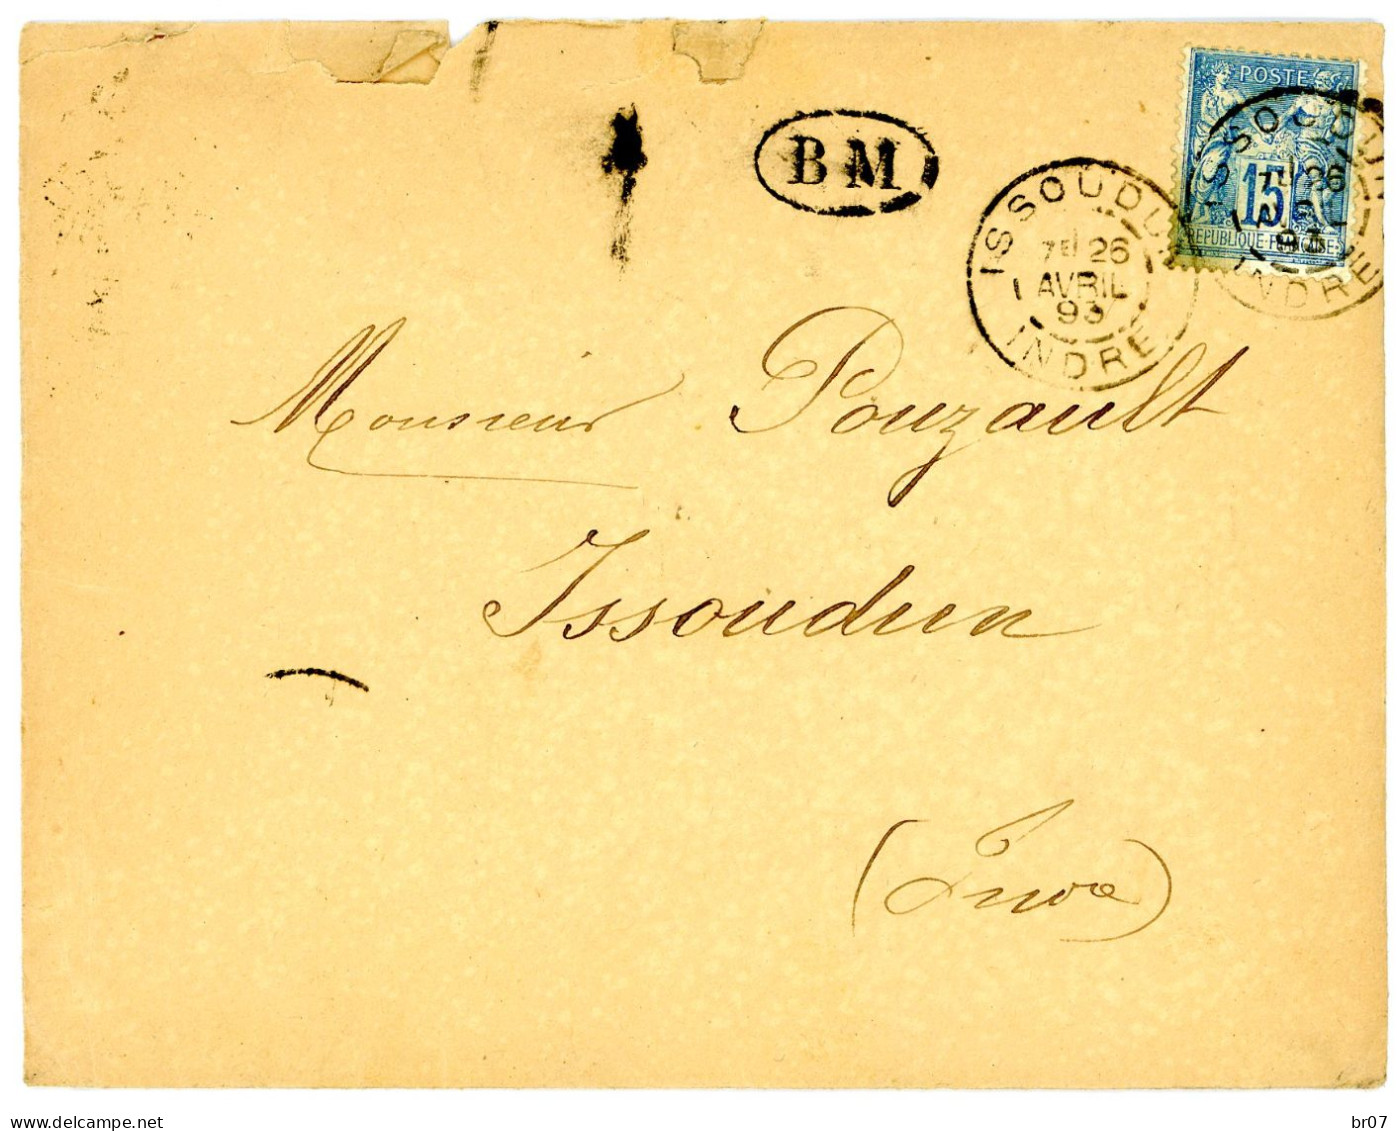 B M
POSTE
15
REPUBLIQUE FRANÇAISE
ISSOUDUN
7E 26
AVRIL
93
INDRE
ISSOUDUN
7E 26
93
INDRE
Monsieur Pouzault
Issoudun
(Indre)
delcampe.net
br07